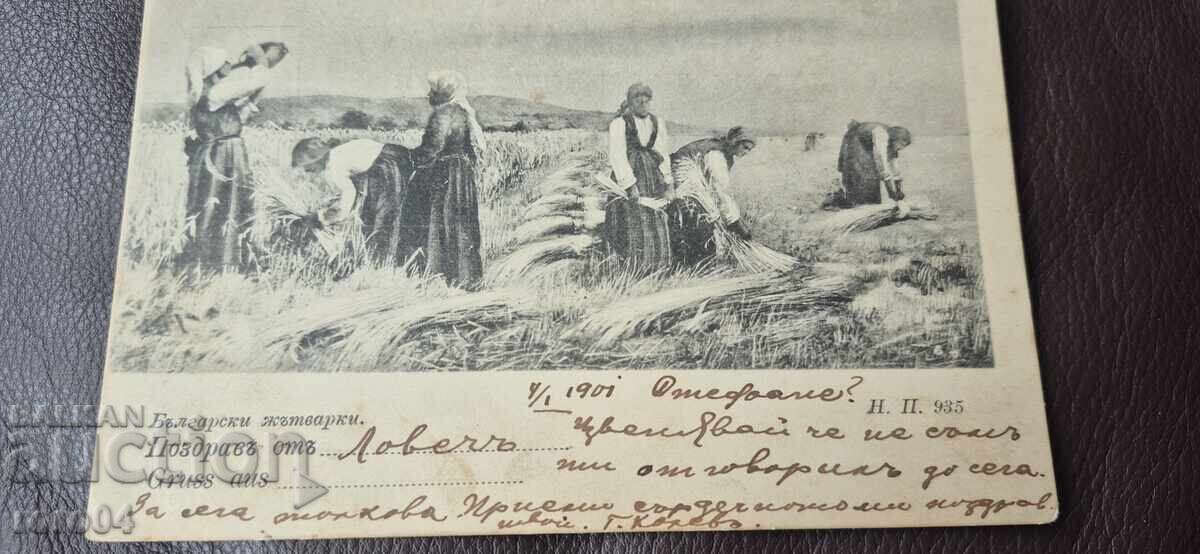 4/I 1901 Стефане?
Български жътварки.
Н. П. 935
Поздравъ отъ Ловечъ
Извенявай че не съмъ
Gruss aus
ти отговорилъ до сега.
За сега толкова Приеми сърдечното ми поздрав
твой. Г. Колевъ
BALKAN
auction